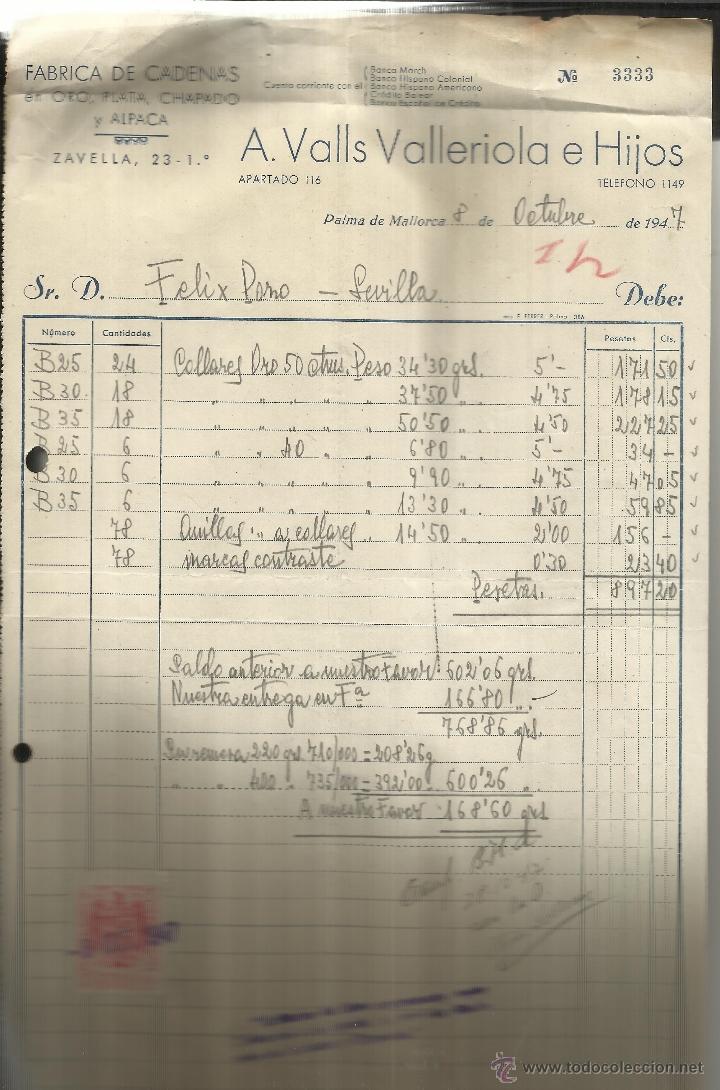 FABRICA DE CADENAS
en ORO, PLATA, CHAPADO
y ALPACA
ZAVELLA, 23 - 1.°
Cuenta corriente con el
Banca March
Banco Hispano Colonial
Banco Hispano Americano
Crédito Balear
Banco Español de Crédito
№ 3333
A. Valls Valleriola e Hijos
APARTADO 116
TELEFONO 1149
Palma de Mallorca 8 de Octubre de 1947
Sr. D. Felix Pozo - Sevilla Debe:
Número Cantidades Pesetas Cts.
B25 24 Collares Oro 50 ctms. Peso 34'30 grs. 5'- 171 50
B30 18 " " " " 37'50 " 4'75 178 15
B35 18 " " " " 50'50 " 4'50 227 25
B25 6 " " 40 " 6'80 " 5'- 34 -
B30 6 " " " " 9'90 " 4'75 47 05
B35 6 " " " " 13'30 " 4'50 59 85
78 Anillas " a collares " 14'50 " 2'00 156 -
78 marcas contraste 0'30 23 40
Pesetas. 897 20
Saldo anterior a nuestro favor: 602'06 grs.
Nuestra entrega en Fª 166'80 "
768'86 grs.
Su remesa 220 grs 710/000 = 208'26 g
" " 400 " 735/000 = 392'00 600'26 "
A nuestro Favor 168'60 grs
www.todocoleccion.net